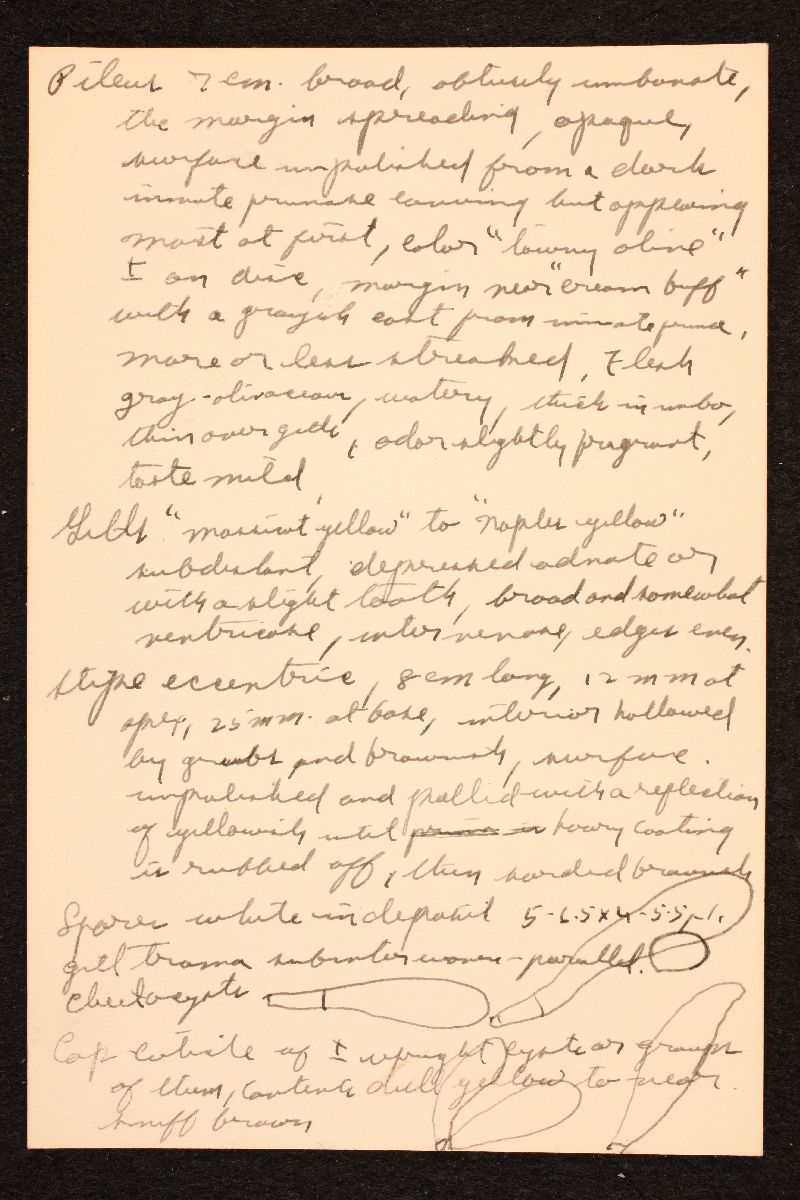 Pileus 7 cm. broad, obtusely umbonate,
the margin spreading, opaque,
surface unpolished from a dark
innate pruinose covering but appearing
moist at first, color "tawny olive"
± on disc, margin near "cream buff"
with a grayish cast from innate pruina,
more or less streaked, Flesh
gray-olivaceous, watery, thick in umbo,
thin over gills, odor slightly fragrant,
taste mild,
Gills "massicot yellow" to "naples yellow"
subdistant, depressed adnate or
with a slight tooth, broad and somewhat
ventricose, intervenose, edges even.
Stipe eccentric, 8 cm long, 12 mm at
apex, 25 mm. at base, interior hollowed
by grubs and brownish, surface
unpolished and pallid with a reflection
of yellowish until hoary coating
is rubbed off, then sordid brownish
Spores white in deposit 5-6.5 x 4-5.5 µ.
gill trama subinterwoven - parallel.
Cheilocysts
Cap cuticle of ± upright cysts or groups
of them, contents dull yellow to near
snuff brown